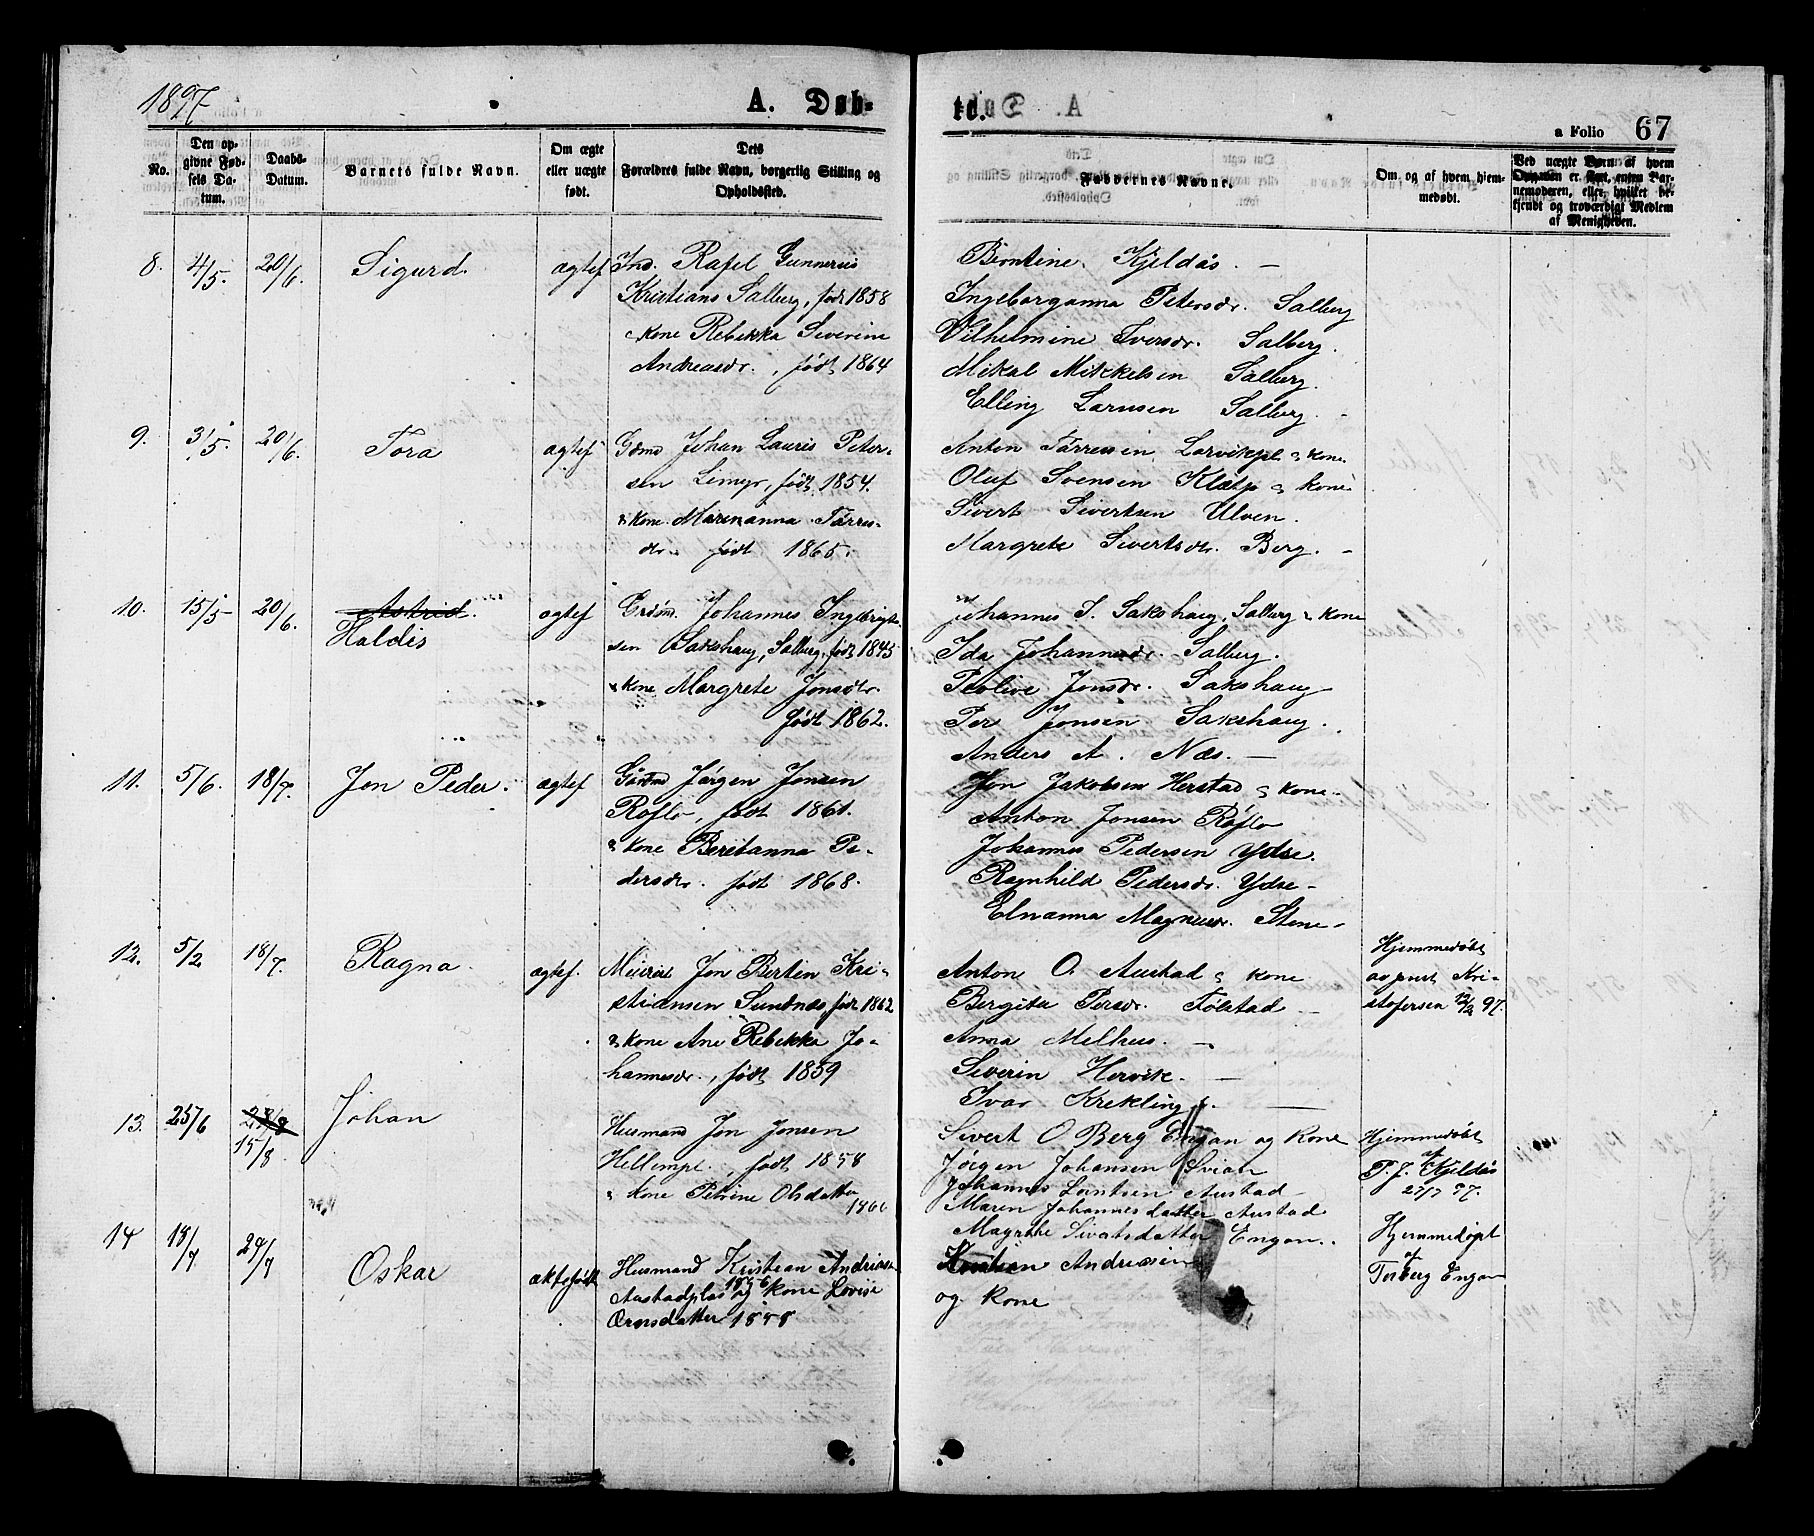 1897
A. Døb-
te.
a Folio 67
No.
Den op-
givne Fød-
sels Da-
tum.
Daabs-
Datum.
Barnets fulde Navn.
Om ægte
eller uægte
født.
Dets
Forældres fulde Navn, borgerlig Stilling og
Opholdssted.
Faddernes Navne.
Om og af hvem hjem-
medøbt.
Ved uægte Børn: af hvem
Opgaven er sket, enten Bar-
nemoderen, eller hvilket be-
kjendt og troværdigt Medlem
af Menigheden.
8. 4/5. 20/6. Sigurd. ægtef
Ind. Rafel Gunnerius
Kristians Salberg, født 1858
& Kone Rebekka Severine
Andreasdr., født 1864
Berntine Kjeldås. —
Ingeborganna Petersdr. Salberg
Vilhelmine Iversdr. Salberg.
Mikal Mikkelsen Salberg.
Elling Larsen Salberg. -
9. 3/5. 20/6. Tora ægtef
Gdmd Johan Lauris Peter-
sen Limyr, født 1854.
& Kone Marenanna Tørres-
dr. født 1865.
Anton Tørressen, Larvikpl & kone
Oluf Svensen Klætp & kone
Sivert Sivertsen Ulven.
Margrete Sivertsdr. Berg. -
10. 15/5 20/6. Astrid. ægtef
Haldis
Grdmd. Johannes Ingebrigt-
sen Sakshaug, Salberg, født 1845
& Kone Margrete Jonsdtr.
født 1862.
Johannes I. Sakshaug, Salberg & Kone
Ida Johannesdr. Salberg.
Peolive Jonsdr. Sakshaug
Per Jonsen Sakshaug.
Anders A. Næs. —
11. 5/6. 18/7. Jon Peder. ægtef
Gårdmd Jørgen Jonsen
Røflo, født 1861.
& Kone Beritanna Pe-
dersdr. født 1868.
Jon Jakobsen Herstad & kone.
Anton Jonsen Røflo
Johannes Pedersen Ydse.
Ragnhild Pedersdr. Ydse -
Elnanna Magnusdr. Stene -
12. 5/2 18/7. Ragna. ægtef.
Murer Jon Bertin Kri-
stiansen Sundnes, født 1862
& Kone Ane Rebekka Jo-
hannesdr., født 1859
Anton O. Austad & kone
Bergita Persdr. Følstad —
Anna Melhus. —
Severin Hervik. —
Ivar Krekling. —
Hjemmedøbt
av prest Kri-
stofersen 12/2 97.
13. 25/6 28/8 Johan
15/8.
Husmand Jon Jonsen
Hellempl., født 1858
& Kone Petrine Olsdatter
1866
Sivert O. Berg Engan og Kone
Jørgen Johansen Svian
Johannes Lorntsen Austad -
Maren Johannesdatter Austad
Magrthe Sivatsdatter Engan.
Hjemmedøbt
af
P. J. Kjeldås
25/7 97.
14 18/7 29/7 Oskar ektefødt
Husmand Kristian Andriasen
Austadplas 1856 og Kone Lovise
Ornsdatter 1858
Kristian Andriasen
og Kone
Hjemmedøpt
af
Torberg Engan